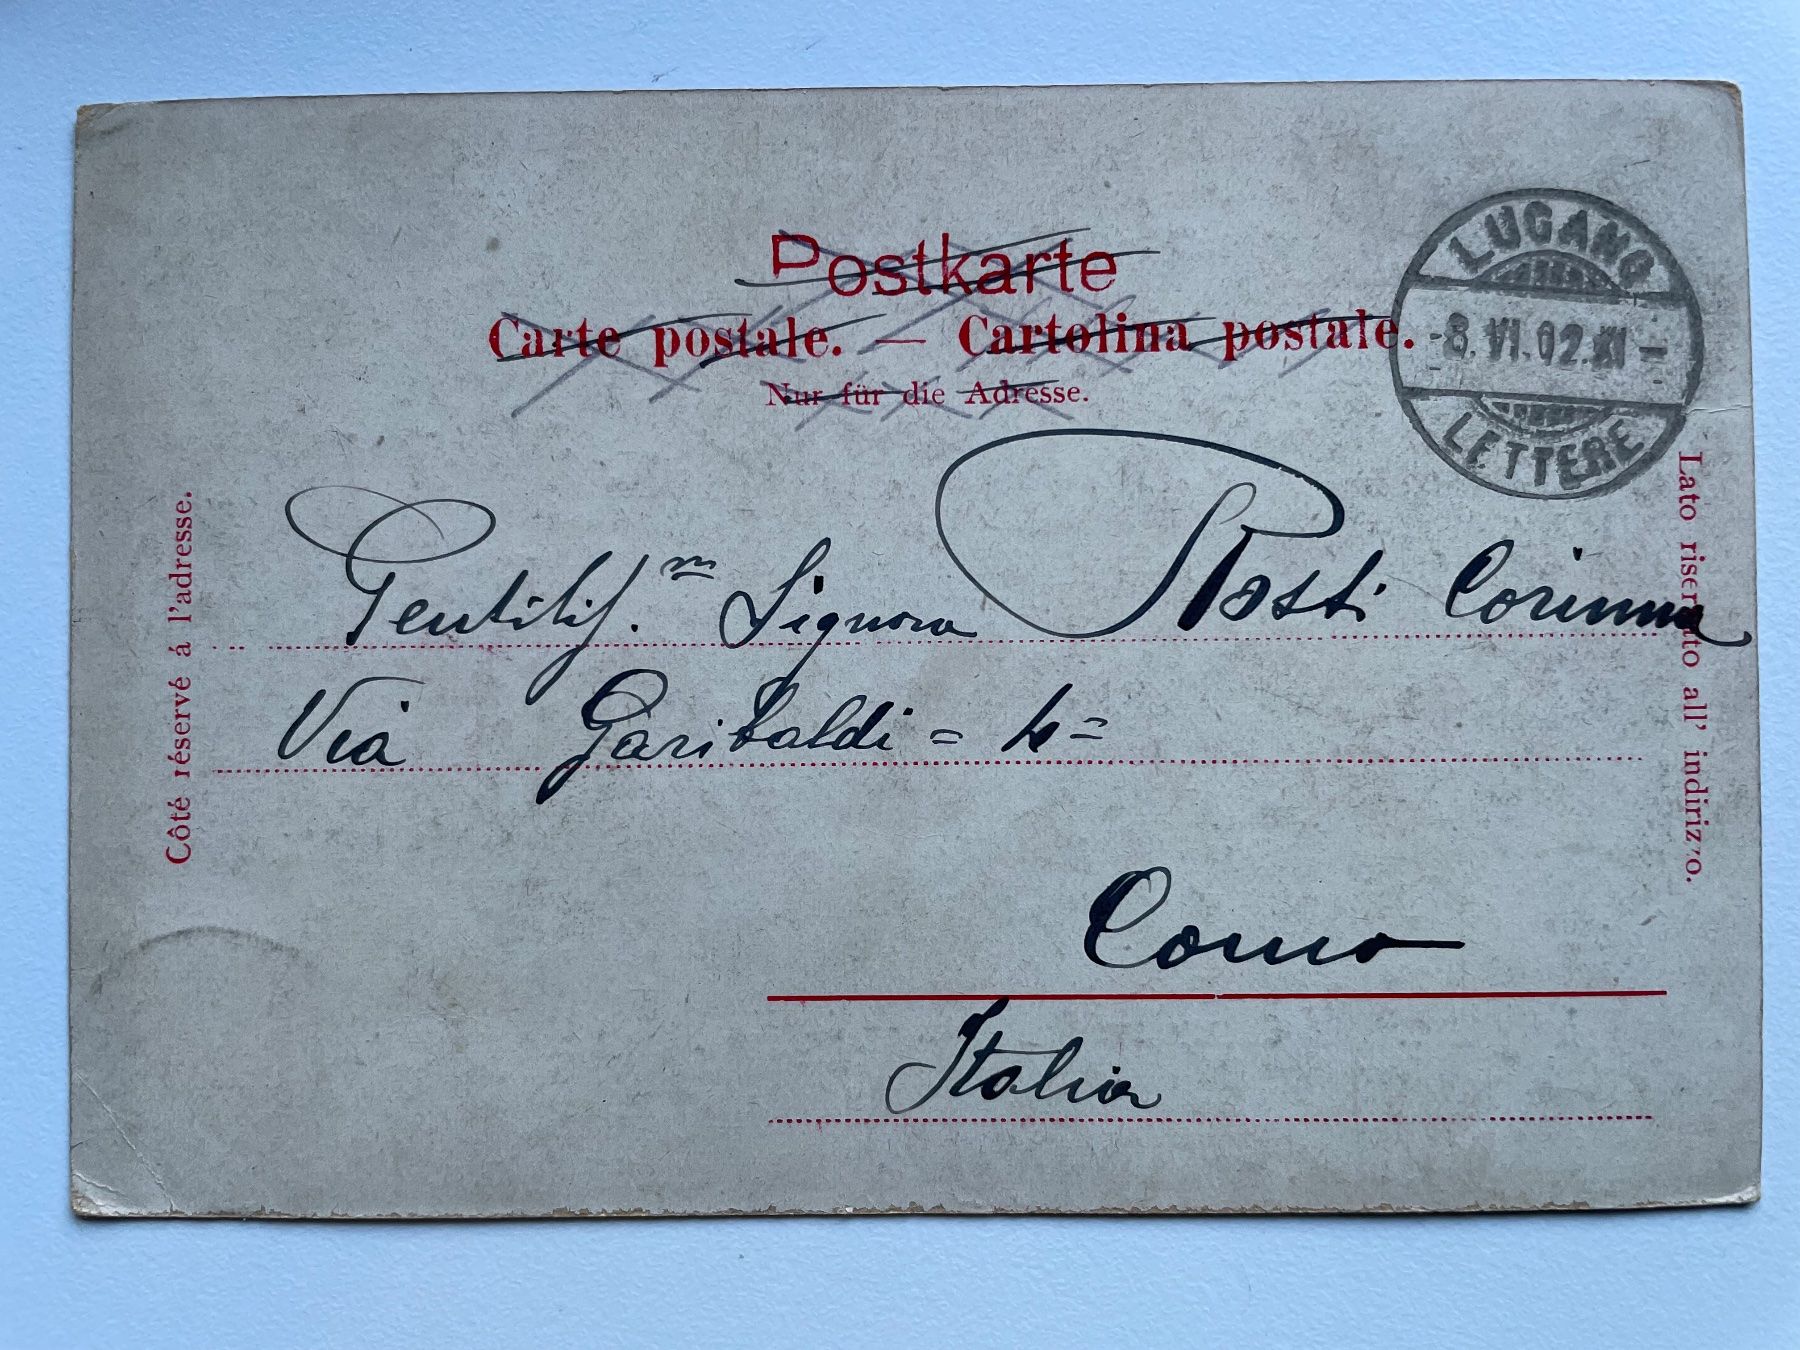 Postkarte
Carte postale. — Cartolina postale.
Nur für die Adresse.
LUGANO
-8.VI.02.XI-
LETTERE
Côté réservé á l'adresse.
Lato riservato all' indirizzo.
Gentilis.ma Signora Rosti Corinna
Via Garibaldi = 4 =
Como
Italia